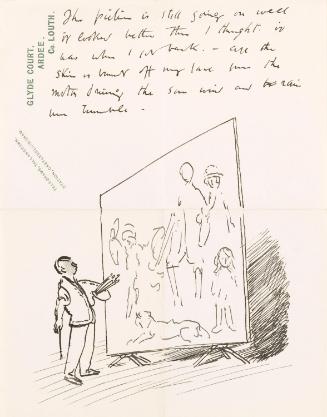 The picture is still going on well
it looked better than I thought it
was when I got back. – all the
skin is burnt off my face from the
motor driving the sun wind and rain
GLYDE COURT,
ARDEE,
CO. LOUTH.